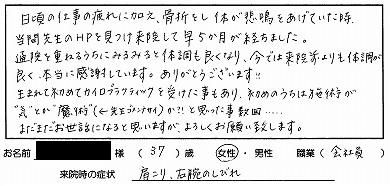 日頃の仕事の疲れに加え、骨折をし体が悲鳴をあげていた時、
当間先生のHPを見つけ来院して早5か月が経ちました。
通院を重ねるうちにみるみると体調も良くなり、今では来院前よりも体調が
良く、本当に感謝しています。ありがとうございます!!
生まれて初めてカイロプラクティックを受けた事もあり、初めのうちは施術が
"気"とか"魔術"(←先生ゴメンナサイ)か?!と思った事数回……
まだまだお世話になると思いますが、よろしくお願い致します。
お名前 様 (37)歳 女性・男性 職業(会社員)
来院時の症状 肩こり、右腕のしびれ